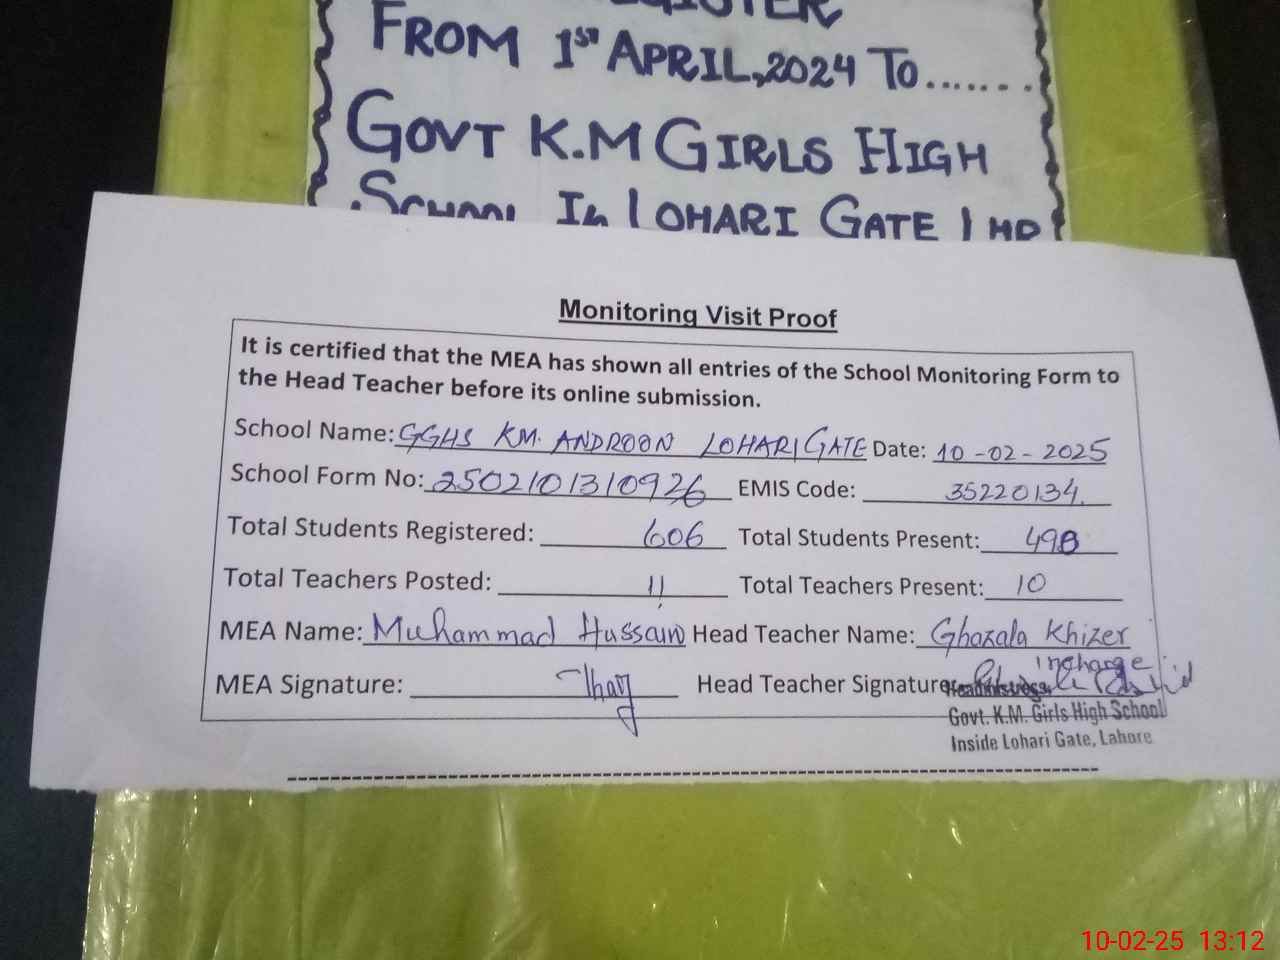 REGISTER
FROM 1ST APRIL, 2024 TO.......
GOVT K.M GIRLS HIGH
SCHOOL In LOHARI GATE LHR
Monitoring Visit Proof
It is certified that the MEA has shown all entries of the School Monitoring Form to
the Head Teacher before its online submission.
School Name: GGHS KM. ANDROON LOHARI GATE Date: 10-02-2025
School Form No: 2502101310926 EMIS Code: 35220134
Total Students Registered: 606 Total Students Present: 498
Total Teachers Posted: 11 Total Teachers Present: 10
MEA Name: Muhammad Hussain Head Teacher Name: Ghazala Khizer
incharge
MEA Signature: Head Teacher Signature:
Headmistress
Govt. K.M. Girls High School
Inside Lohari Gate, Lahore
10-02-25 13:12